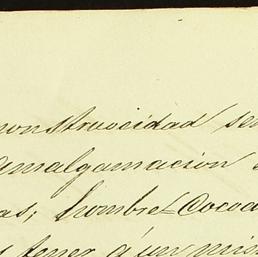 monstruocidad se
Amalgamacion
as; hombre=Cocod
tener á un mism